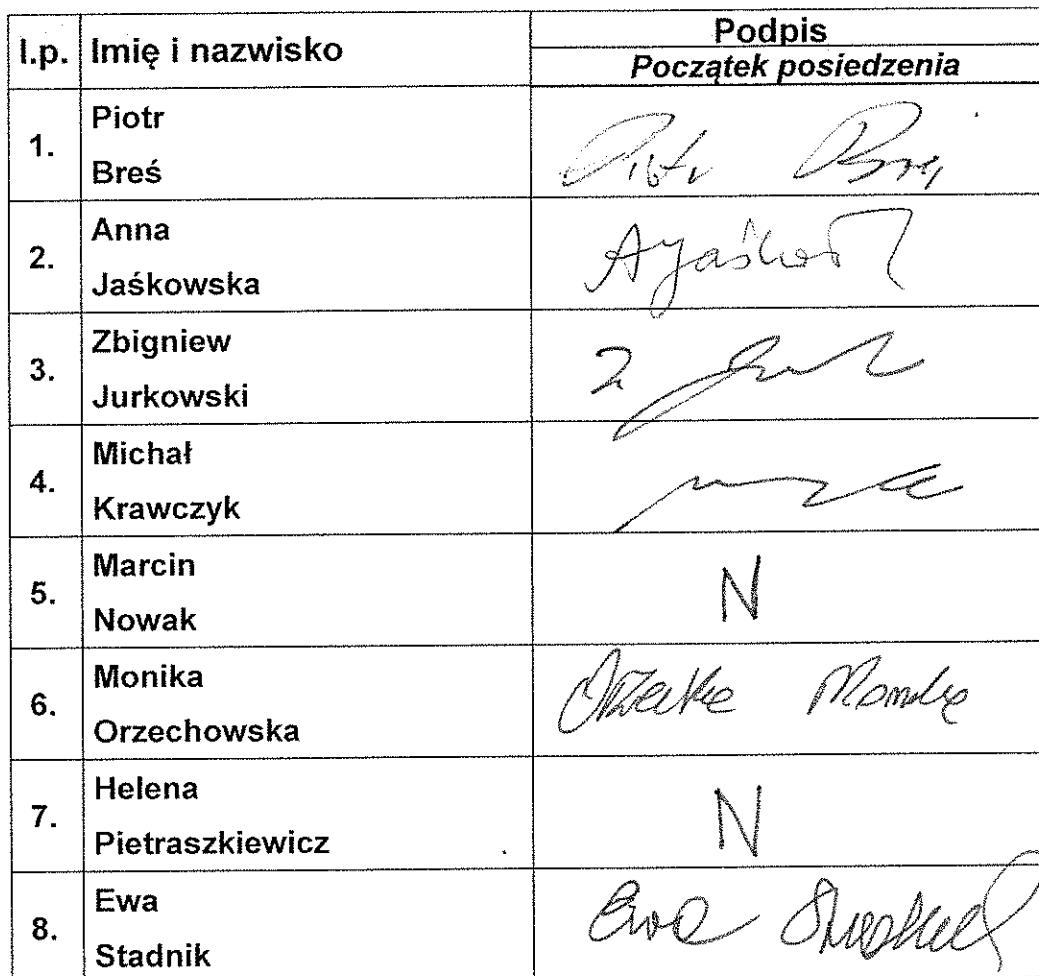 l.p. Imię i nazwisko Podpis
Początek posiedzenia
1. Piotr
Breś
Piotr Breś
2. Anna
Jaśkowska
AJaśkow
3. Zbigniew
Jurkowski
4. Michał
Krawczyk
5. Marcin
Nowak
N
6. Monika
Orzechowska
7. Helena
Pietraszkiewicz
N
8. Ewa
Stadnik
Ewa